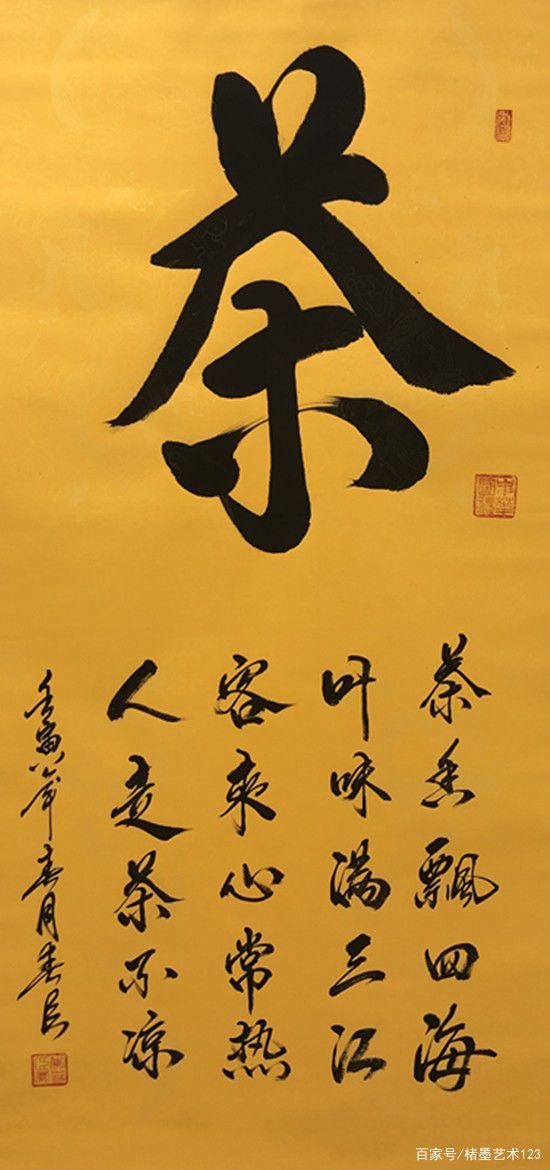 茶
茶香飄四海
叶味满三江
客来心常热
人走茶不凉
壬寅年春月
百家号/楮墨艺术123